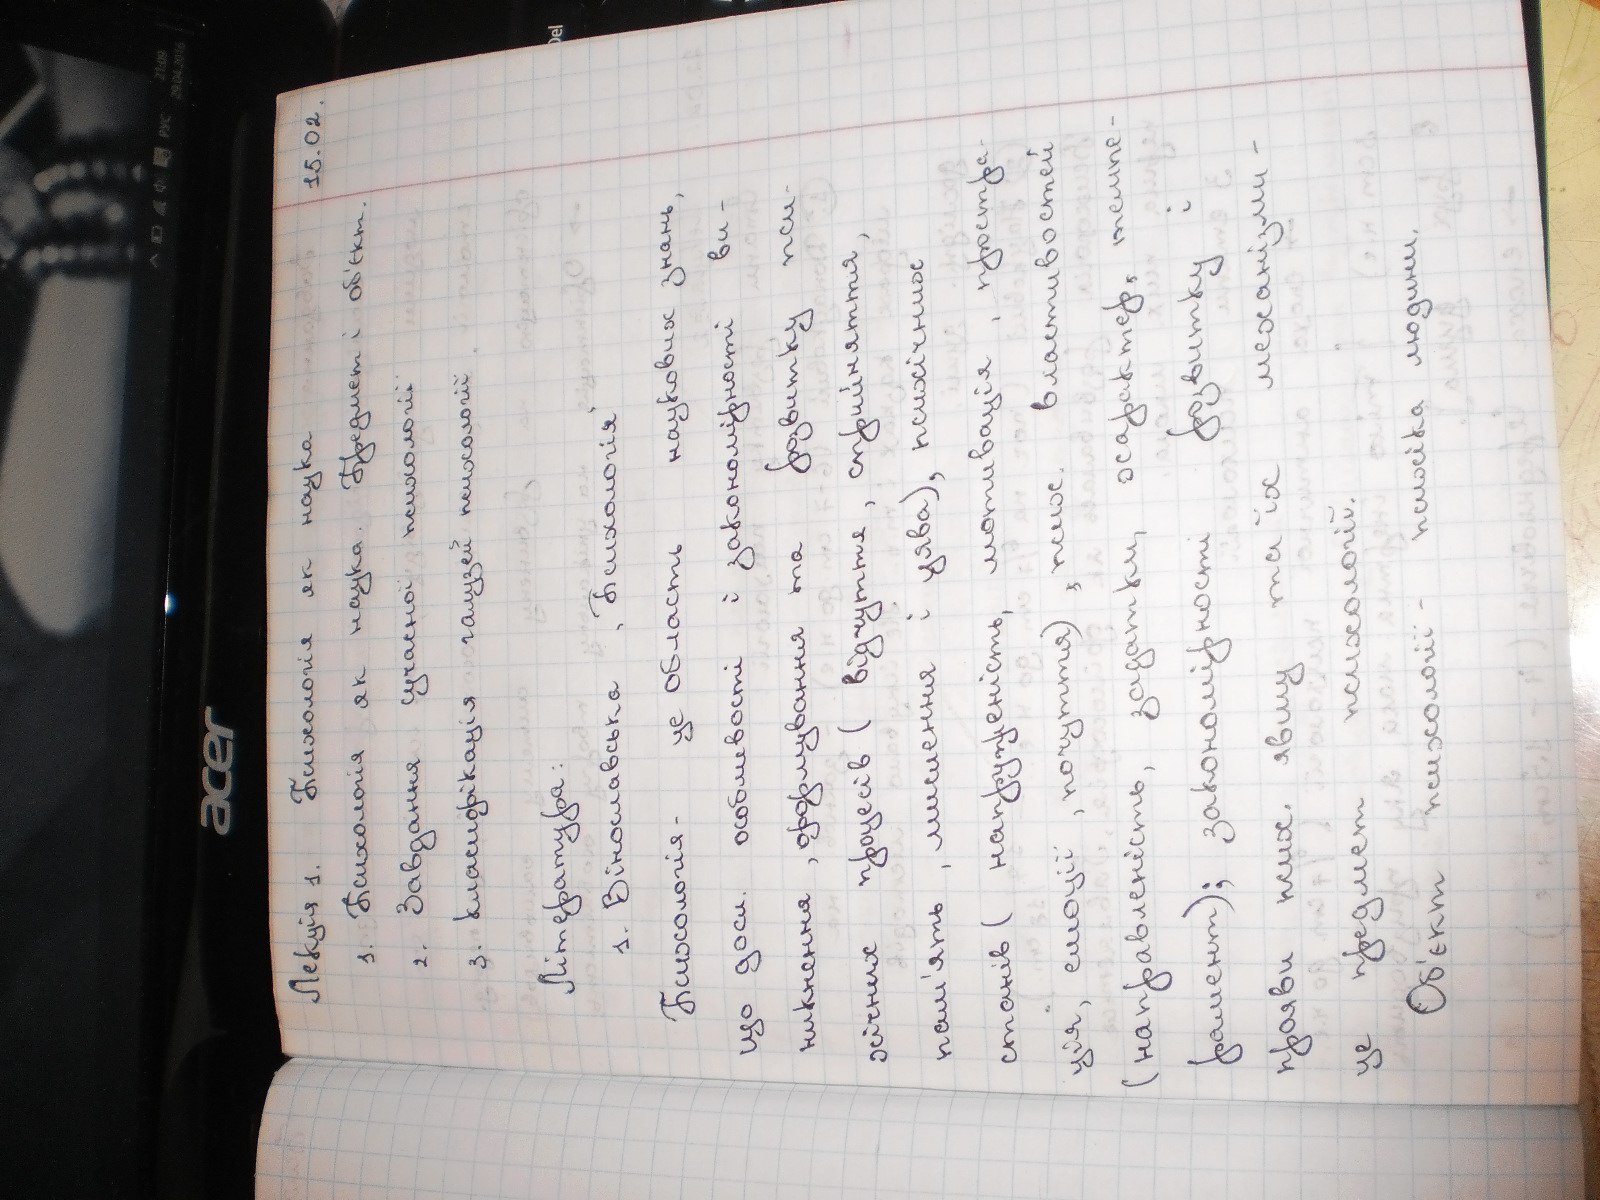 Лекція 1. Психологія як наука 15.02.
1. Психологія як наука. Предмет і об'єкт.
2. Завдання сучасної психології
3. класифікація галузей психології.
Література:
1. Вікославська „Психологія"
Психологія - це область наукових знань,
що досл. особливості і закономірності ви-
никнення, формування та розвитку пси-
хічних процесів (відчуття, сприйняття,
пам'ять, мислення і уява), психічних
станів (напруженість, мотивація, фрустра-
ція, емоції, почуття), псих. властивостей
(направленість, задатки, характер, темпе-
рамент); закономірності розвитку і
прояви псих. явищ та їх механізми -
це предмет психології.
Об'єкт психології - психіка людини.
acer
Del
РУС
21:09
20.04.2016